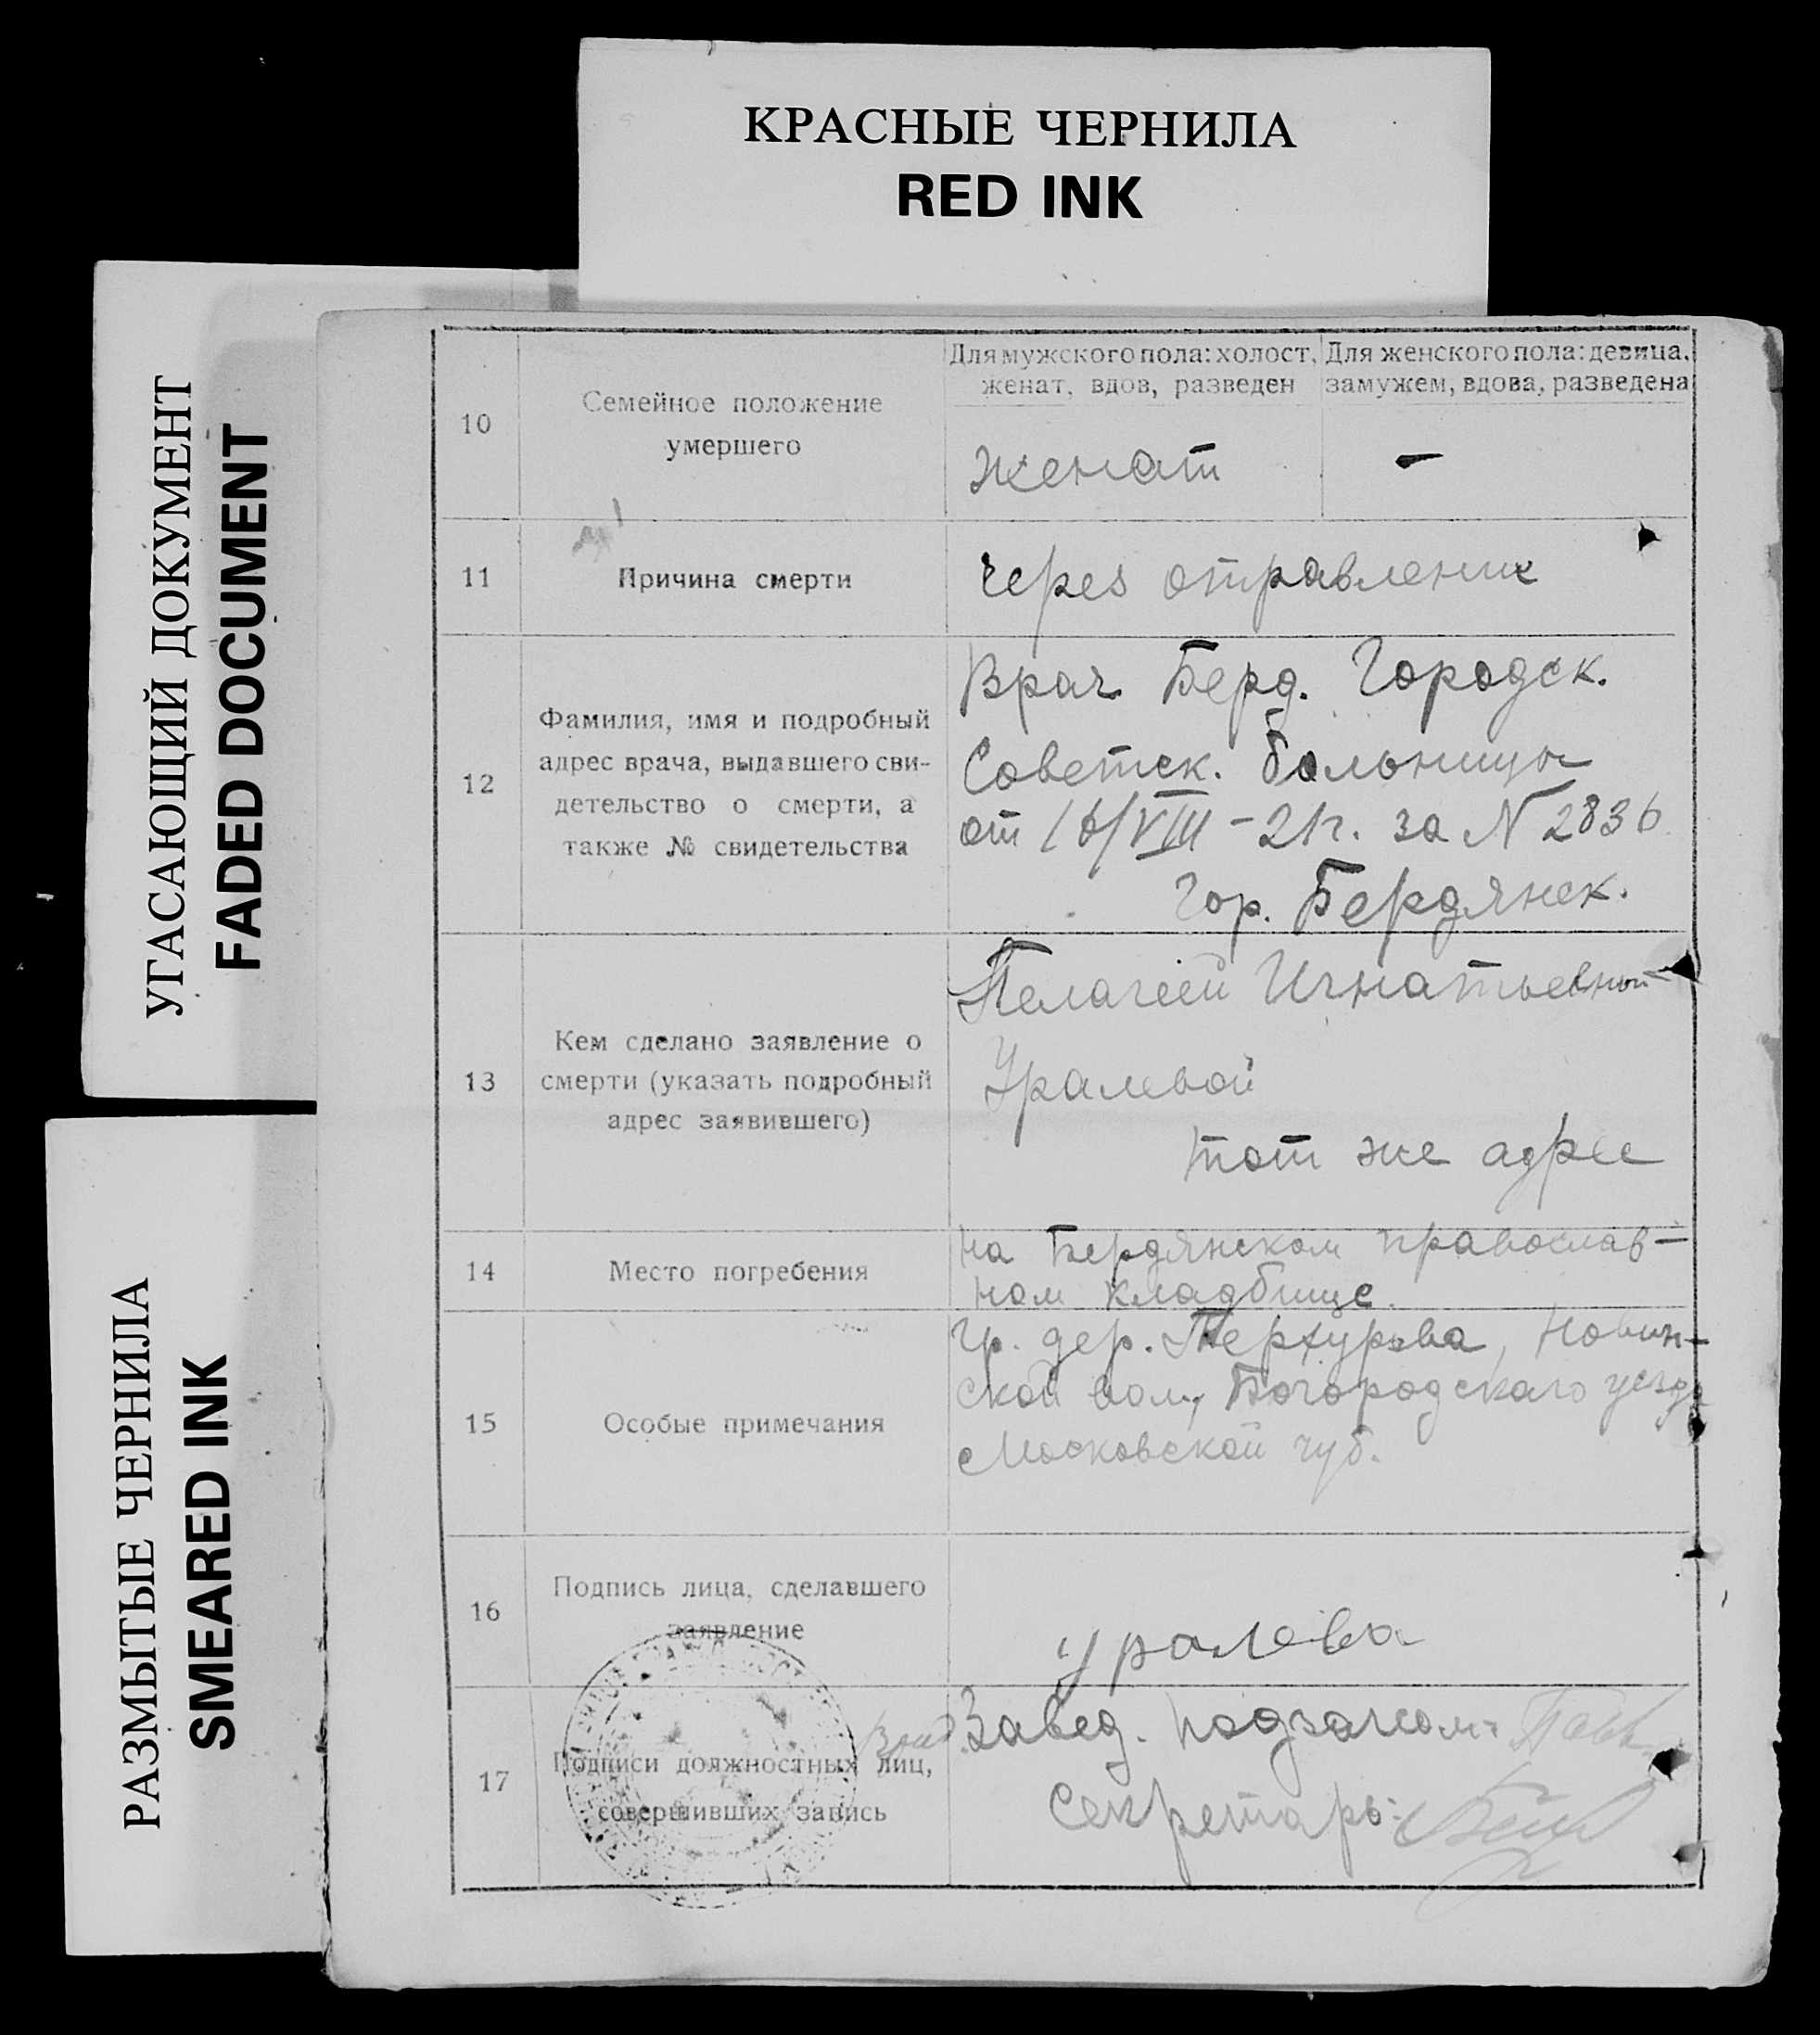 КРАСНЫЕ ЧЕРНИЛА
RED INK
УГАСАЮЩИЙ ДОКУМЕНТ
FADED DOCUMENT
РАЗМЫТЫЕ ЧЕРНИЛА
SMEARED INK
10
Семейное положение
умершего
Для мужского пола: холост,
женат, вдов, разведен
Для женского пола: девица,
замужем, вдова, разведена
женат
–
11
Причина смерти
через отравление
12
Фамилия, имя и подробный
адрес врача, выдавшего сви-
детельство о смерти, а
также № свидетельства
Врач Берд. Городск.
Советск. больницы
от 16/VIII – 21г. за N 2836
Гор. Бердянск.
13
Кем сделано заявление о
смерти (указать подробный
адрес заявившего)
Пелагеей Игнатьевной
Уралевой
тот же адрес
14
Место погребения
на Бердянском православ-
ном кладбище.
15
Особые примечания
гр. дер. Новин-
ской вол., Богородскаго уезда
Московской губ.
16
Подпись лица, сделавшего
заявление
Уралева
17
Подписи должностных лиц,
совершивших запись
Завед. подзагсом:
Секретарь: